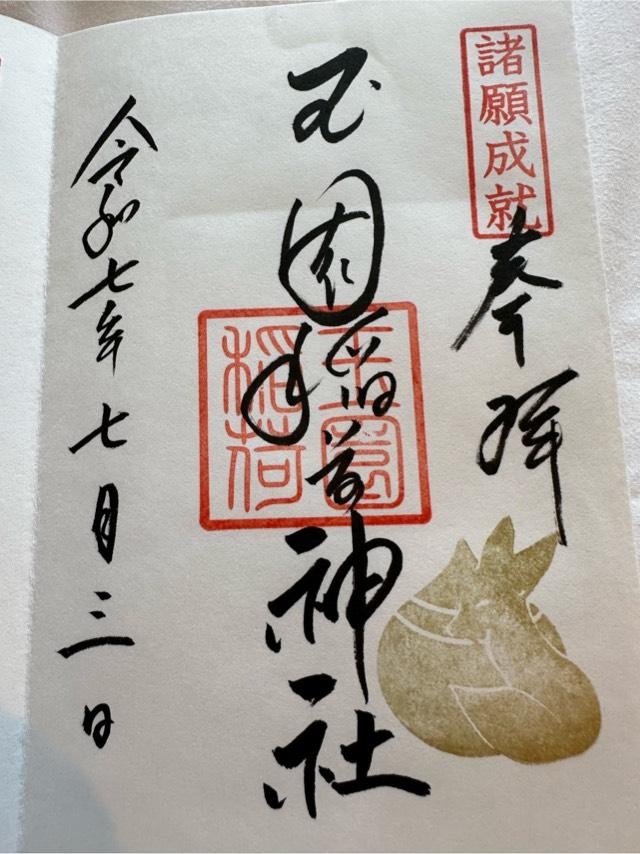 諸願成就
奉拝
玉園稲荷神社
玉園
稲荷
令和七年七月三日